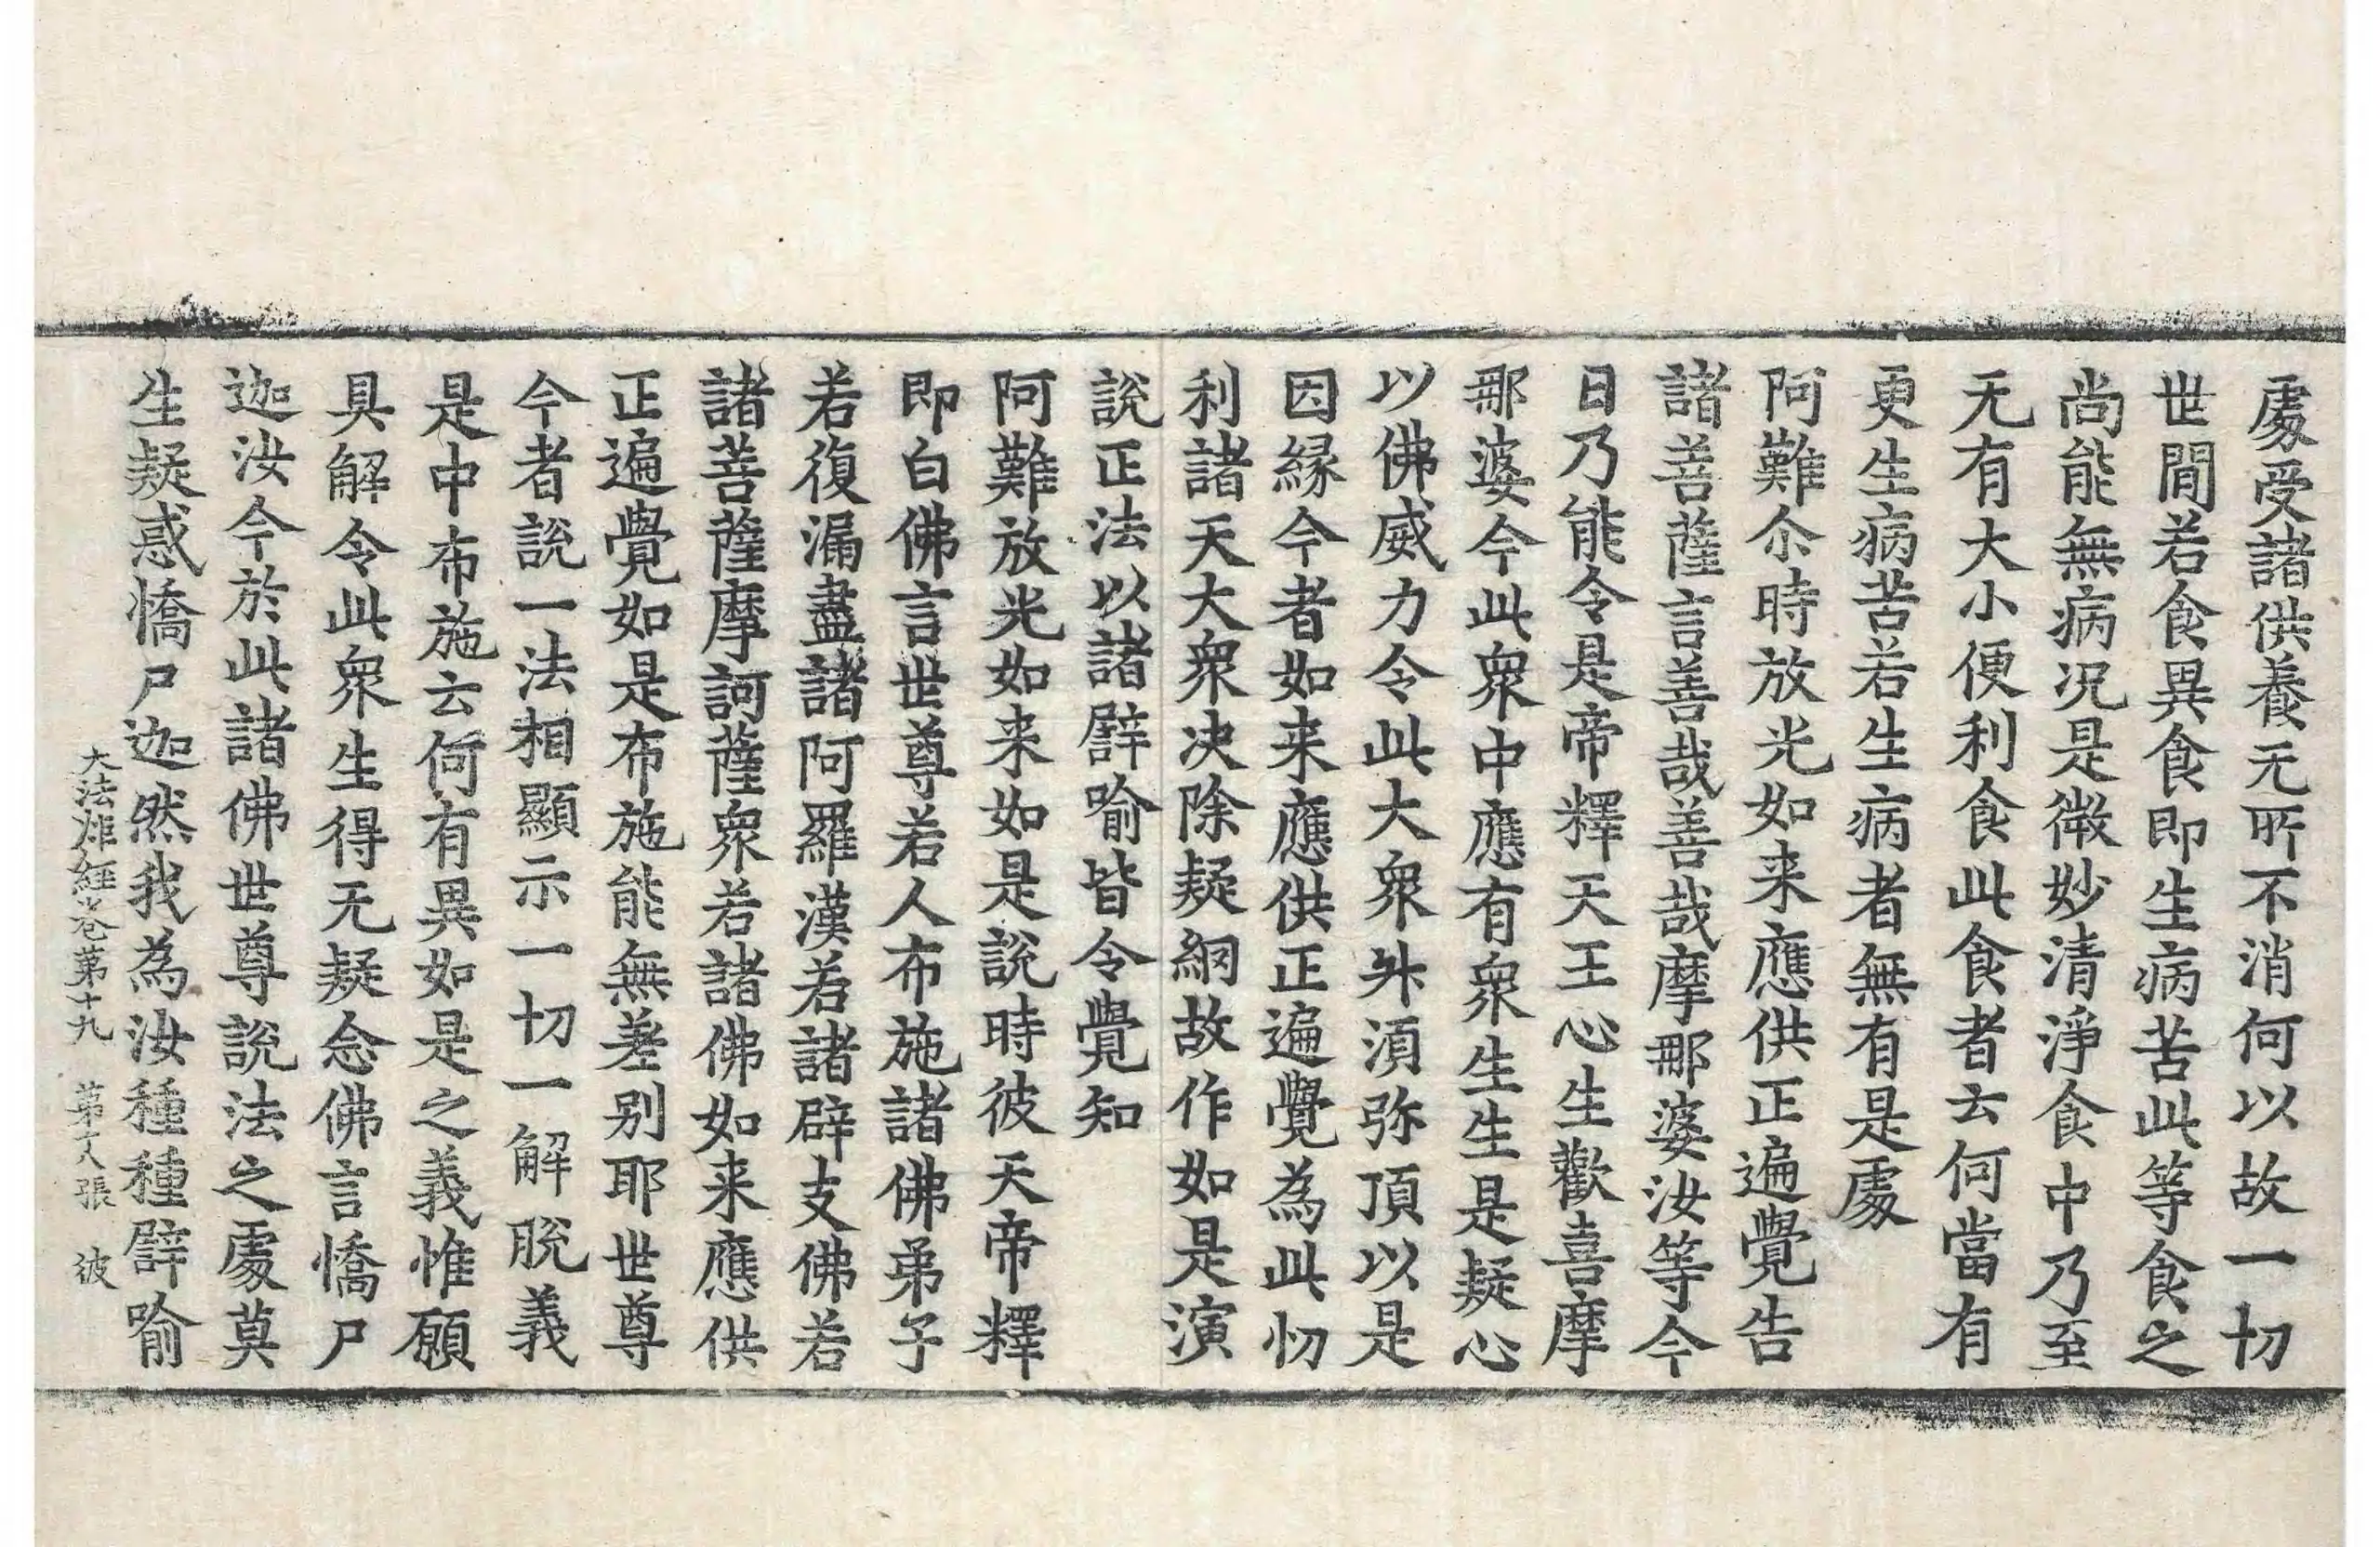 處受諸供養无所不消何以故一切
世間若食異食即生病苦此等食之
尚能無病况是微妙清淨食中乃至
无有大小便利食此食者云何當有
更生病苦若生病者無有是處
阿難尒時放光如来應供正遍覺告
諸菩薩言善哉善哉摩那婆汝等今
日乃能令是帝釋天王心生歡喜摩
那婆今此衆中應有衆生生是疑心
以佛威力令此大衆外湏弥頂以是
因緣今者如来應供正遍覺為此忉
利諸天大衆决除疑網故作如是演
說正法以諸譬喻皆令覺知
阿難放光如来如是說時彼天帝釋
即白佛言世尊若人布施諸佛弟子
若復漏盡諸阿羅漢若諸辟支佛若
諸菩薩摩訶薩衆若諸佛如来應供
正遍覺如是布施能無差别耶世尊
今者說一法相顯示一切一解脫義
是中布施云何有異如是之義惟願
具解令此衆生得无疑念佛言憍尸
迦汝今於此諸佛世尊說法之處莫
生疑惑憍尸迦然我為汝種種譬喻
大法炬經卷第十九 第 張 彼